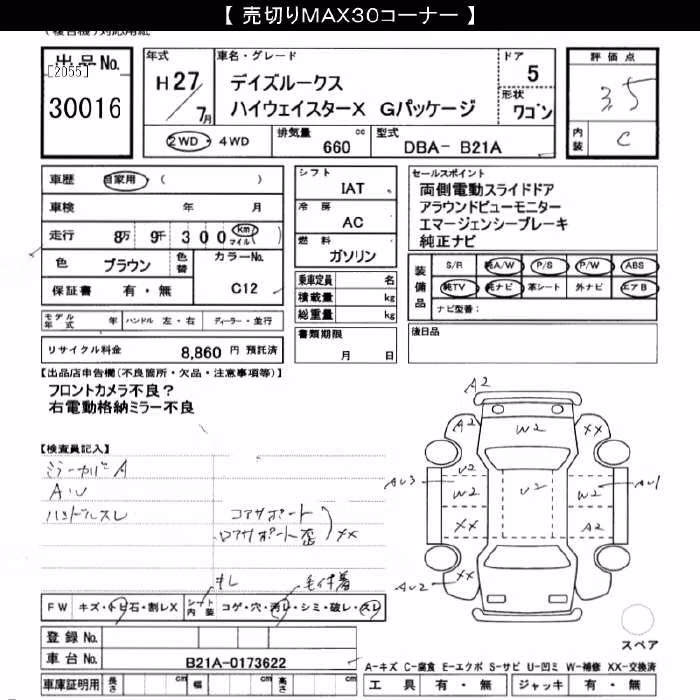 【 売切りMAX30コーナー 】
出品No.
[2055]
30016
年式
H27/7月
車名・グレード
デイズルークス
ハイウェイスターX Gパッケージ
ドア
5
形状
ワゴン
2WD・4WD
排気量
660 cc
型式
DBA- B21A
評価点
3.5
内装
C
車歴 自家用 ( )
車検 年 月
走行 8万 9千 300 km マイル ( )
色 ブラウン 色替 カラーNo. C12
保証書 有・無
モデル年式 年 ハンドル 左・右 ディーラー・並行
リサイクル料金 8,860 円 預託済
シフト
IAT
冷房
AC
燃料
ガソリン
乗車定員 名
積載量 kg
総重量 kg
書類期限
月 日
セールスポイント
両側電動スライドドア
アラウンドビューモニター
エマージェンシーブレーキ
純正ナビ
装備品
S/R 純A/W P/S P/W ABS
純TV 純ナビ 革シート 外ナビ エアB
ナビ型番:
後日品
【出品店申告欄(不良箇所・欠品・注意事項等)】
フロントカメラ不良?
右電動格納ミラー不良
【検査員記入】
ミラーカバーA
A・U
ハンドルスレ
コアサポート
ロアサポート歪 XX
FW キズ・トビ石・割レX シート内装 コゲ・穴・汚レ・シミ・破レ・スレ
登録No.
車台No. B21A-0173622
車庫証明用 長さ cm 幅 cm 高さ cm
A2
A2
W2
XX
U2
W2
U2
W2
AU3
AU1
XX
A2
XX
AU2
スペア
A-キズ C-腐食 E-エクボ S-サビ U-凹ミ W-補修 XX-交換済
工具 有・無 ジャッキ 有・無